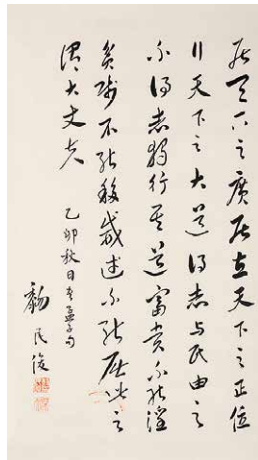 居天下之廣居立天下之正位
行天下之大道得志与民由之
不得志獨行其道富貴不能淫
貧賤不能移威武不能屈此之
謂大丈夫
乙卯秋日書孟子句
民俊